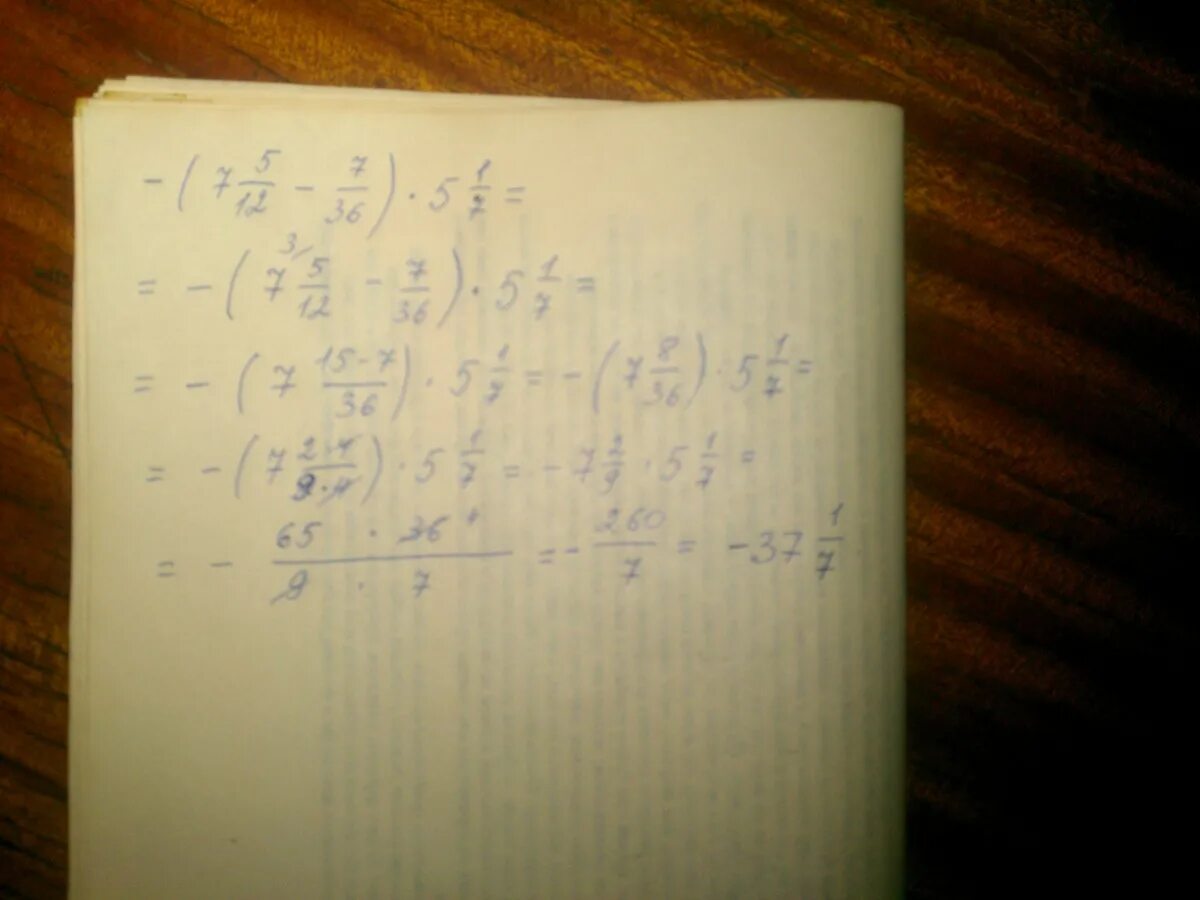 -( 7 5/12 - 7/36 ) · 5 1/7 =
= -( 7 5/12 ³⁄ - 7/36 ) · 5 1/7 =
= -( 7 (15-7)/36 ) · 5 1/7 = -( 7 8/36 ) · 5 1/7 =
= -( 7 (2·4)/(9·4) ) · 5 1/7 = - 7 2/9 · 5 1/7 =
= - (65 · 36 ⁴)/(9 · 7) = - 260/7 = - 37 1/7